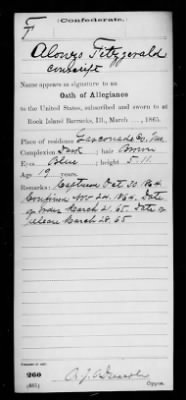 (Confederate.)
F
Alonzo Fitzgerald
conscript
Name appears as signature to an
Oath of Allegiance
to the United States, subscribed and sworn to at
Rock Island Barracks, Ill., March ......, 1865.
Place of residence Gasconade Co, Mo
Complexion Dark ; hair Brown
Eyes Blue ; height 5.11
Age 19 years.
Remarks: Captured Oct 30 1864
Confined Nov 24. 1864. Date
of order March 21. 65. Date of
release March 28. 65
260
(861)
Copyist.